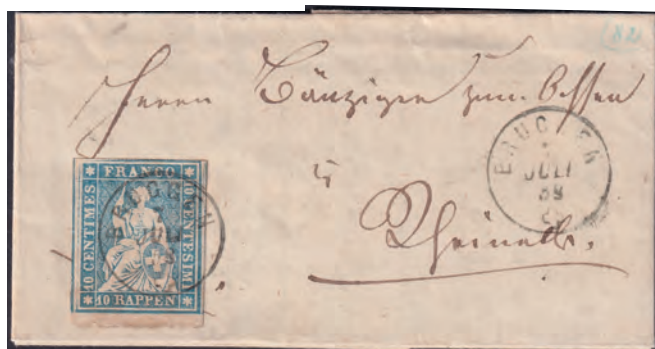 Herrn Bänziger zum Ochsen
in
Rheineck.
BRUGGEN
JULI
58
FRANCO
10 CENTIMES
10 CENTESIMI
10 RAPPEN
BRUGGEN
JULI